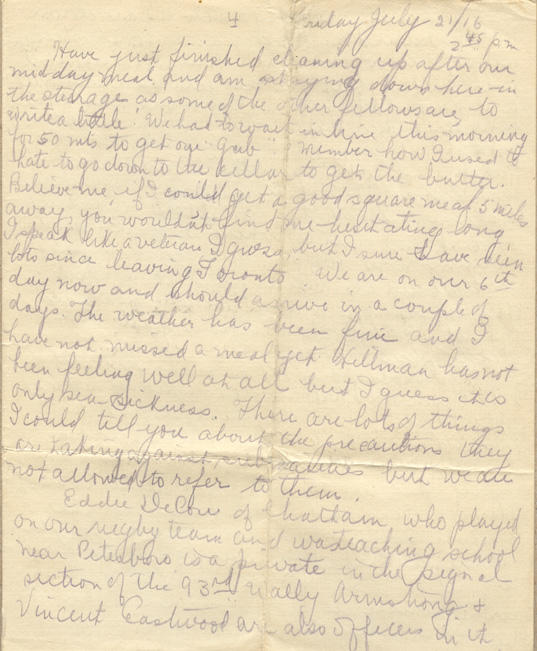 4 Friday July 21/16
2 45 pm
Have just finished cleaning up after our
midday meal and am staying down here in
the steerage as some of the other fellows are, to
write a little. We had to wait in line this morning
for 50 mts to get our "grub". Member how I used to
hate to go down to the cellar to get the butter.
Believe me if I could get a good square meal 5 miles
away, you wouldn't find me hesitating long
I speak like a veteran I guess, but I sure have seen
lots since leaving Toronto. We are on our 6th
day now and should arrive in a couple of
days. The weather has been fine and I
have not missed a meal yet. Hillman has not
been feeling well at all but I guess it is
only sea-sickness. There are lots of things
I could tell you about the precautions they
are taking against submarines but we are
not allowed to refer to them.
Eddie DeCow of Chatham, who played
on our rugby team and was teaching school
near Peterboro is a private in the signal
section of the 93rd. Wally Armstrong &
Vincent Eastwood are also officers in it